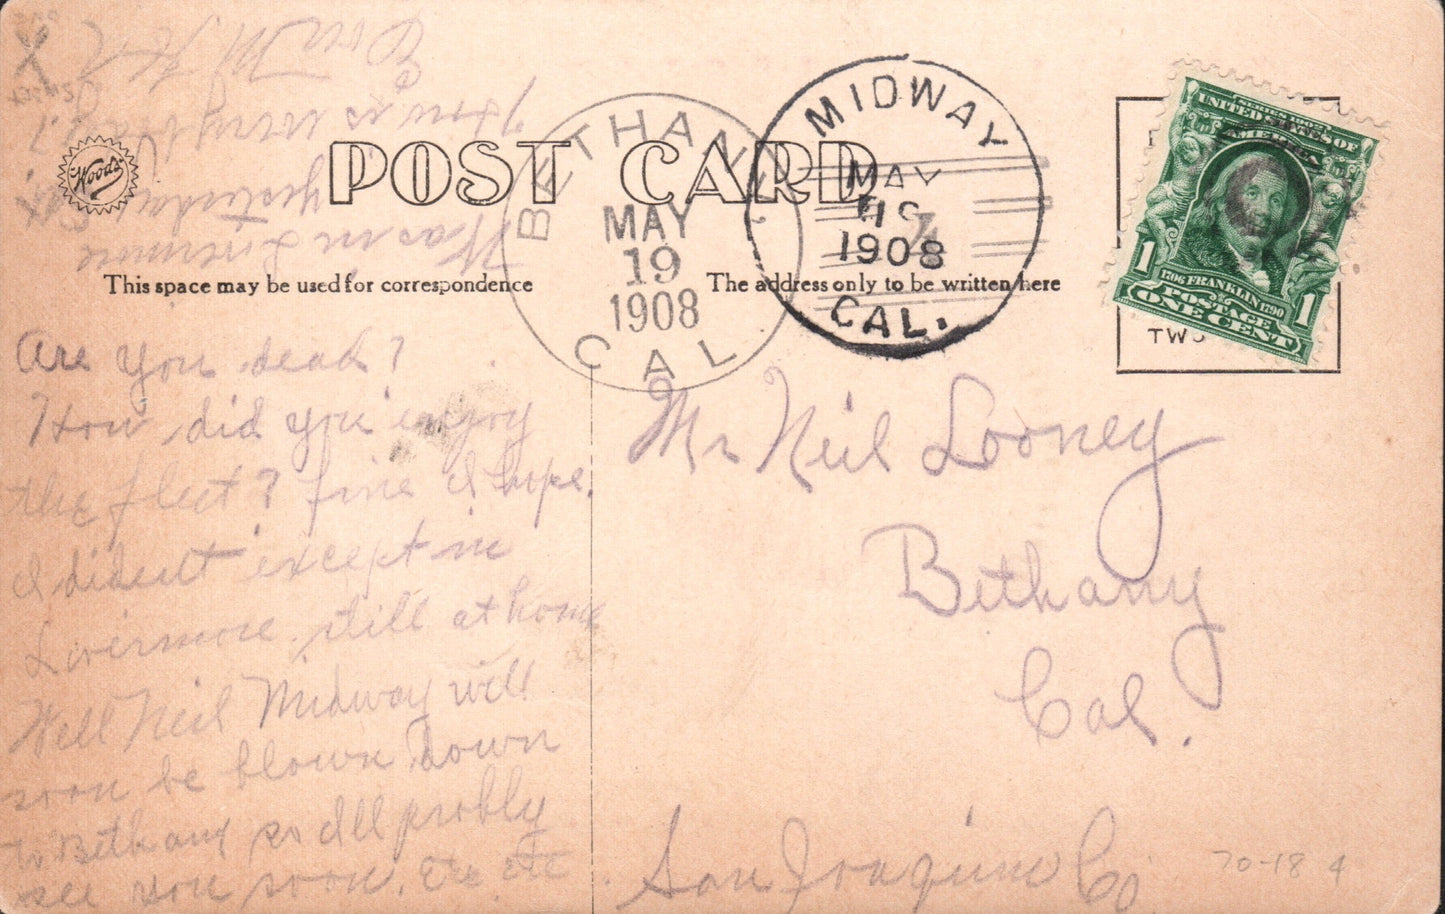 Wood's
POST CARD
This space may be used for correspondence
The address only to be written here
BETHANY
MAY
19
1908
CAL.
MIDWAY
MAY
1908
CAL.
SERIES 1902
UNITED STATES OF
AMERICA
1706 FRANKLIN 1790
POSTAGE
1 ONE CENT 1
TWO
Are you dead?
How did you enjoy
the fleet? fine I hope.
I did'nt except in
Livermore. still at home
Well Neil Midway will
soon be blown down
to Bethany so Ill probly
see you soon. Etc etc
Was in Livermore
Yesterday
very
Mr Neil Looney
Bethany
Cal.
San Joaquin Co
70-18 4